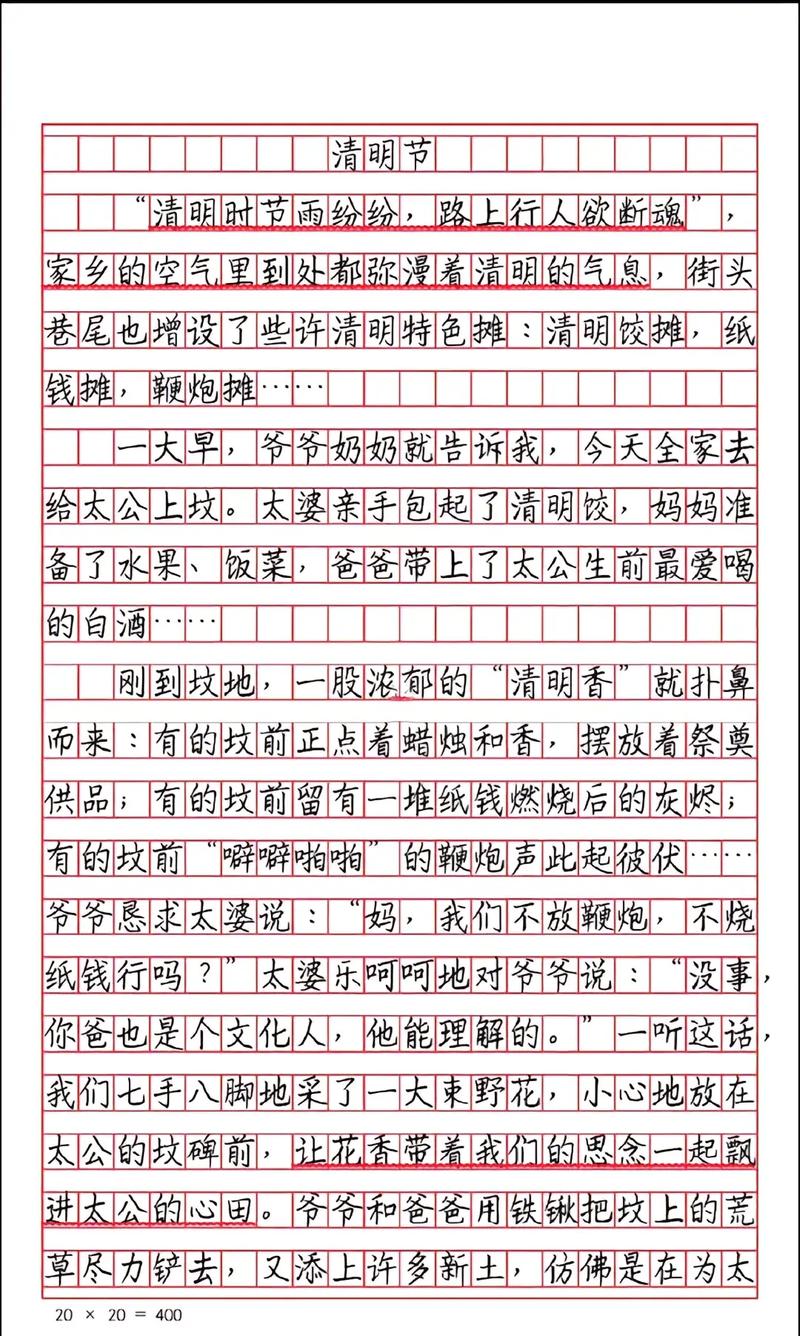 清明节
“清明时节雨纷纷，路上行人欲断魂”，
家乡的空气里到处都弥漫着清明的气息，街头
巷尾也增设了些许清明特色摊：清明饺摊，纸
钱摊，鞭炮摊……
一大早，爷爷奶奶就告诉我，今天全家去
给太公上坟。太婆亲手包起了清明饺，妈妈准
备了水果、饭菜，爸爸带上了太公生前最爱喝
的白酒……
刚到坟地，一股浓郁的“清明香”就扑鼻
而来：有的坟前正点着蜡烛和香，摆放着祭奠
供品；有的坟前留有一堆纸钱燃烧后的灰烬；
有的坟前“噼噼啪啪”的鞭炮声此起彼伏……
爷爷恳求太婆说：“妈，我们不放鞭炮，不烧
纸钱行吗？”太婆乐呵呵地对爷爷说：“没事，
你爸也是个文化人，他能理解的。”一听这话，
我们七手八脚地采了一大束野花，小心地放在
太公的坟碑前，让花香带着我们的思念一起飘
进太公的心田。爷爷和爸爸用铁锹把坟上的荒
草尽力铲去，又添上许多新土，仿佛是在为太
20 × 20 = 400